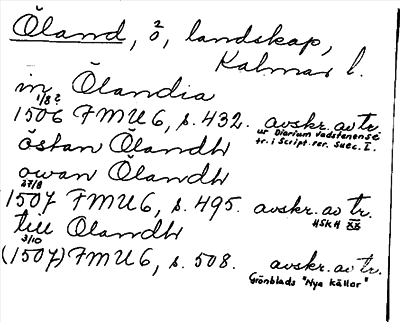 Öland, 2 ö, landskap,
Kalmar l.
in Ölandia
1/8?
1506 FMU 6, s. 432. avskr. av tr.
ur Diarium Vadstenense
tr. i Script. rer. Suec. I.
östan Ölandh
owan Ölandh
27/8
1507 FMU 6, s. 495. avskr. av tr.
HSKH XX
till Olandh
3/10
(1507) FMU 6, s. 508. avskr. av tr.
Grönblads "Nya källor"